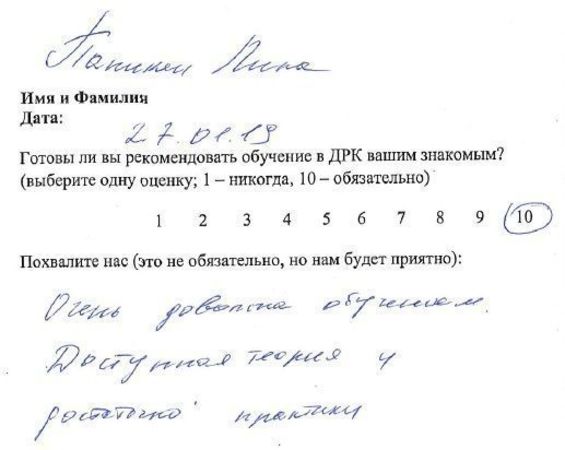 Нина
Имя и Фамилия
Дата:
27.01.19
Готовы ли вы рекомендовать обучение в ДРК вашим знакомым?
(выберите одну оценку; 1 – никогда, 10 – обязательно)
1 2 3 4 5 6 7 8 9 10
Похвалите нас (это не обязательно, но нам будет приятно):
Очень довольна обучением.
Доступная теория и
достаточно практики